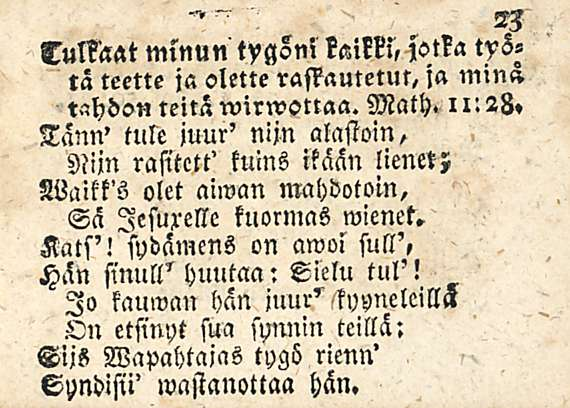 23
Tulkaat minun tygöni kaikki, jotka työ-
tä teette ja olette raskautetut, ja minä
tahdon teitä wirwottaa. Math. 11:28.
Tänn' tule juur' nijn alastoin,
Nijn rasitett' kuins ikään lienet;
Waikk's olet aiwan mahdotoin,
Sä Jesuxelle kuormas wienet.
Kats'! sydämens on awoi sull',
Hän sinull' huutaa: Sielu tul'!
Jo kauwan hän juur' kyyneleillä
On etsinyt sua synnin teillä:
Sijs Wapahtajas tygö rienn'
Syndisii' wastanottaa hän.